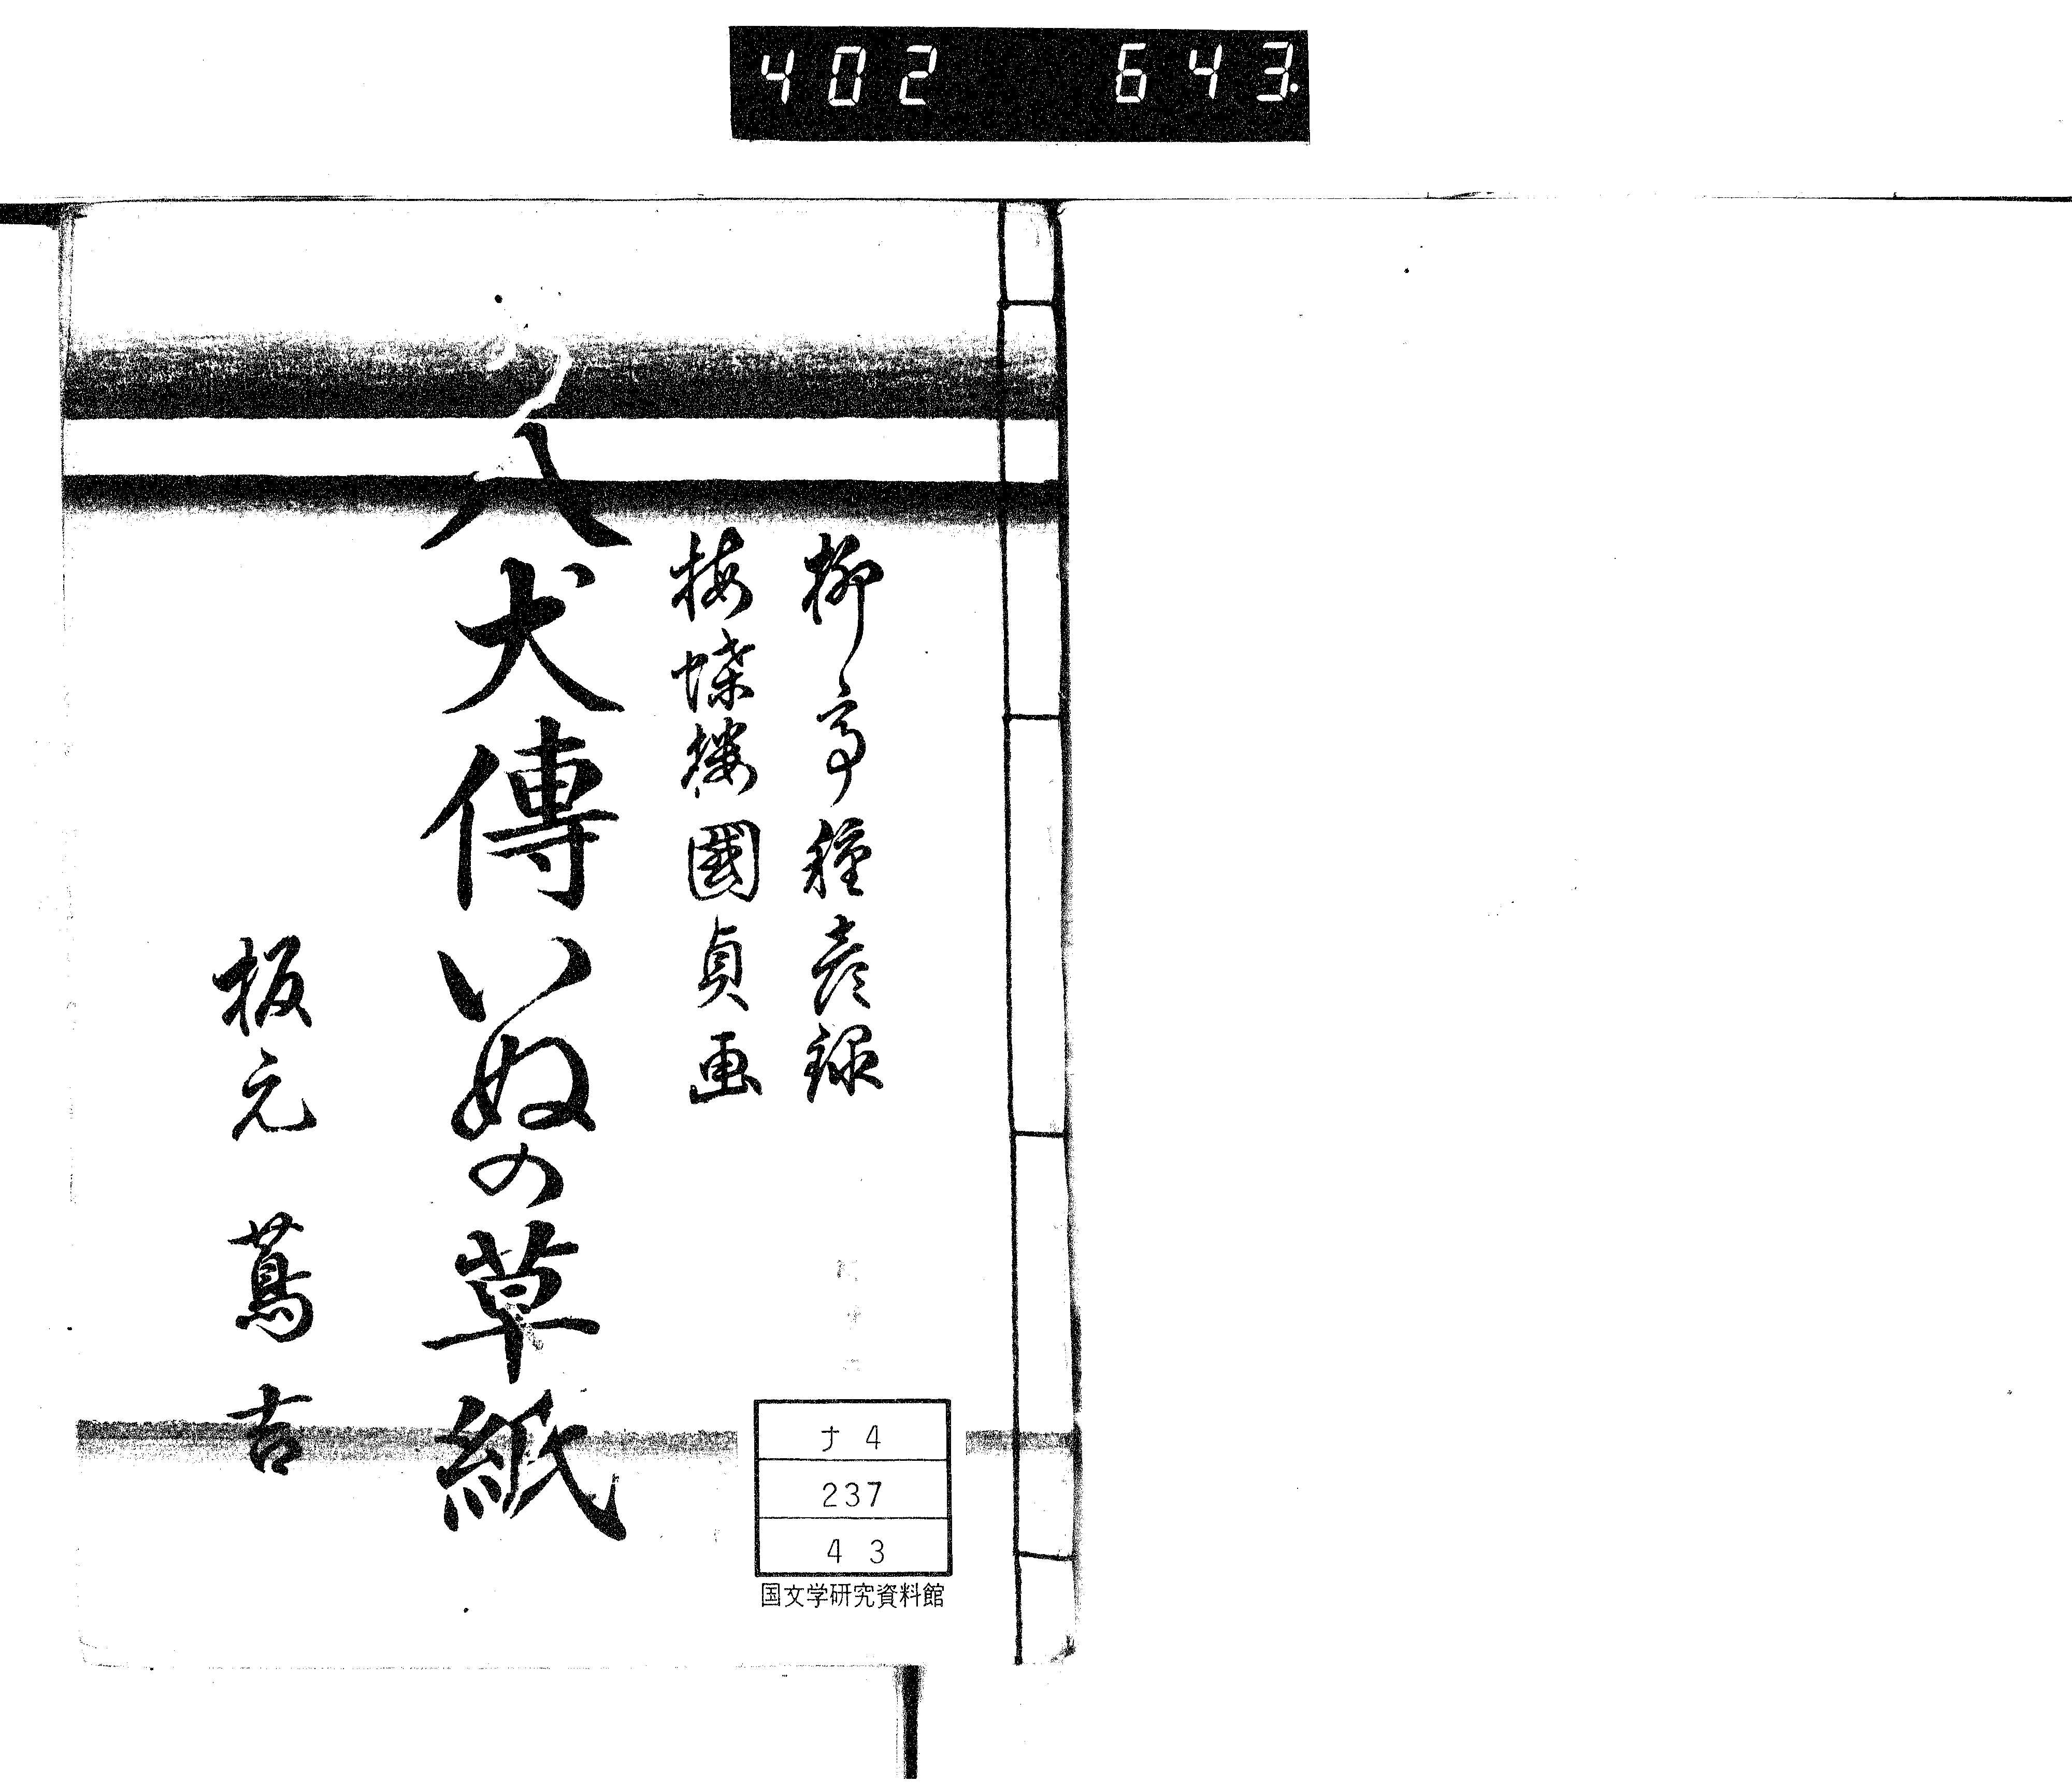 402 643.
柳亭種彦録
梅蝶楼國貞画
八犬傳いぬの草紙
板元 蔦吉
ナ4
237
43
国文学研究資料館